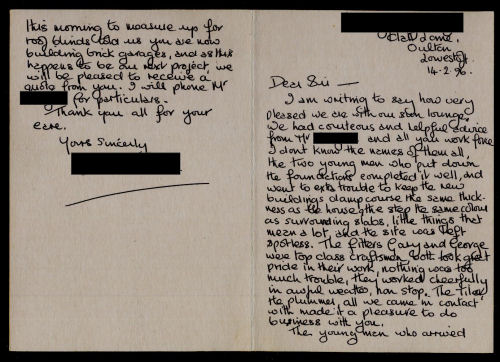 Clap Lane,
Oulton
Lowestoft
14-2-96.
Dear Sir —
I am writing to say how very
pleased we are with our son lounge,
we had courteous and helpful advice
from Mr and all you work force
I don't know the names of them all,
the two young men who put down
the foundations completed it well, and
went to extra trouble to keep the new
buildings dampcourse the same thick-
ness as the house, the step the same colour
as surrounding slabs, little things that
mean a lot, and the site was left
spotless. The fitters Gary and George
were top class craftsman both took great
pride in their work, nothing was too
much trouble, they worked cheerfully
in awful weather, non stop. The tiler
the plummer, all we came in contact
with made it a pleasure to do
business with you.
The young men who arrived
this morning to measure up for
roof blinds told us you are now
building brick garages, and as this
happens to be our next project, we
will be pleased to receive a
quote from you. I will phone Mr
for particulars.
Thank you all for your
care.
Yours Sincerely